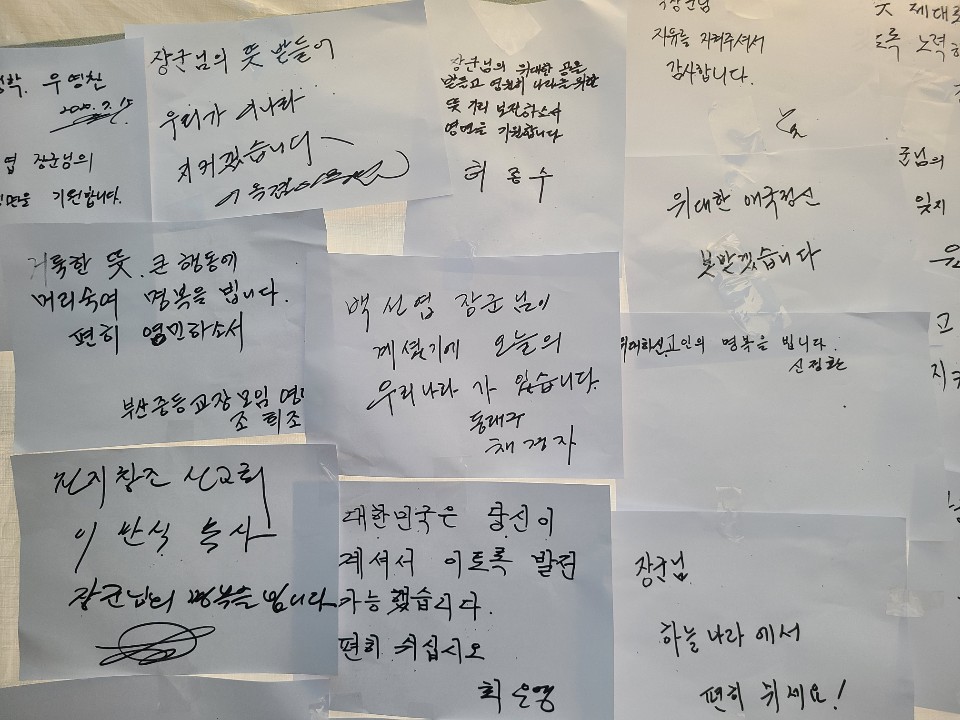 우영친
2020. 7. 15
엽 장군님의
기원합니다.
장군님의 뜻 받들어
우리가 이나라
지키겠습니다
장군님의 위대한 공은
받들고 영원히 나라를 위한
뜻 기리 보전하소서
영면을 기원합니다
허종수
장군님
자유를 지켜주셔서
감사합니다.
위대한 애국정신
본받겠습니다
제대로
노력
군님의
잊지
거룩한 뜻. 큰 행동에
머리숙여 명복을 빕니다.
편히 영민하소서
부산중등교장모임
조희조
백선엽 장군님이
계셨기에 오늘의
우리나라가 있습니다.
동래구
채경자
고인의 명복을 빕니다.
신정환
천지창조 선교회
이반석 목사
장군님의 명복을 빕니다
대한민국은 당신이
계셔서 이토록 발전
가능했습니다.
편히 쉬십시오
최은영
장군님
하늘나라에서
편히 쉬세요!